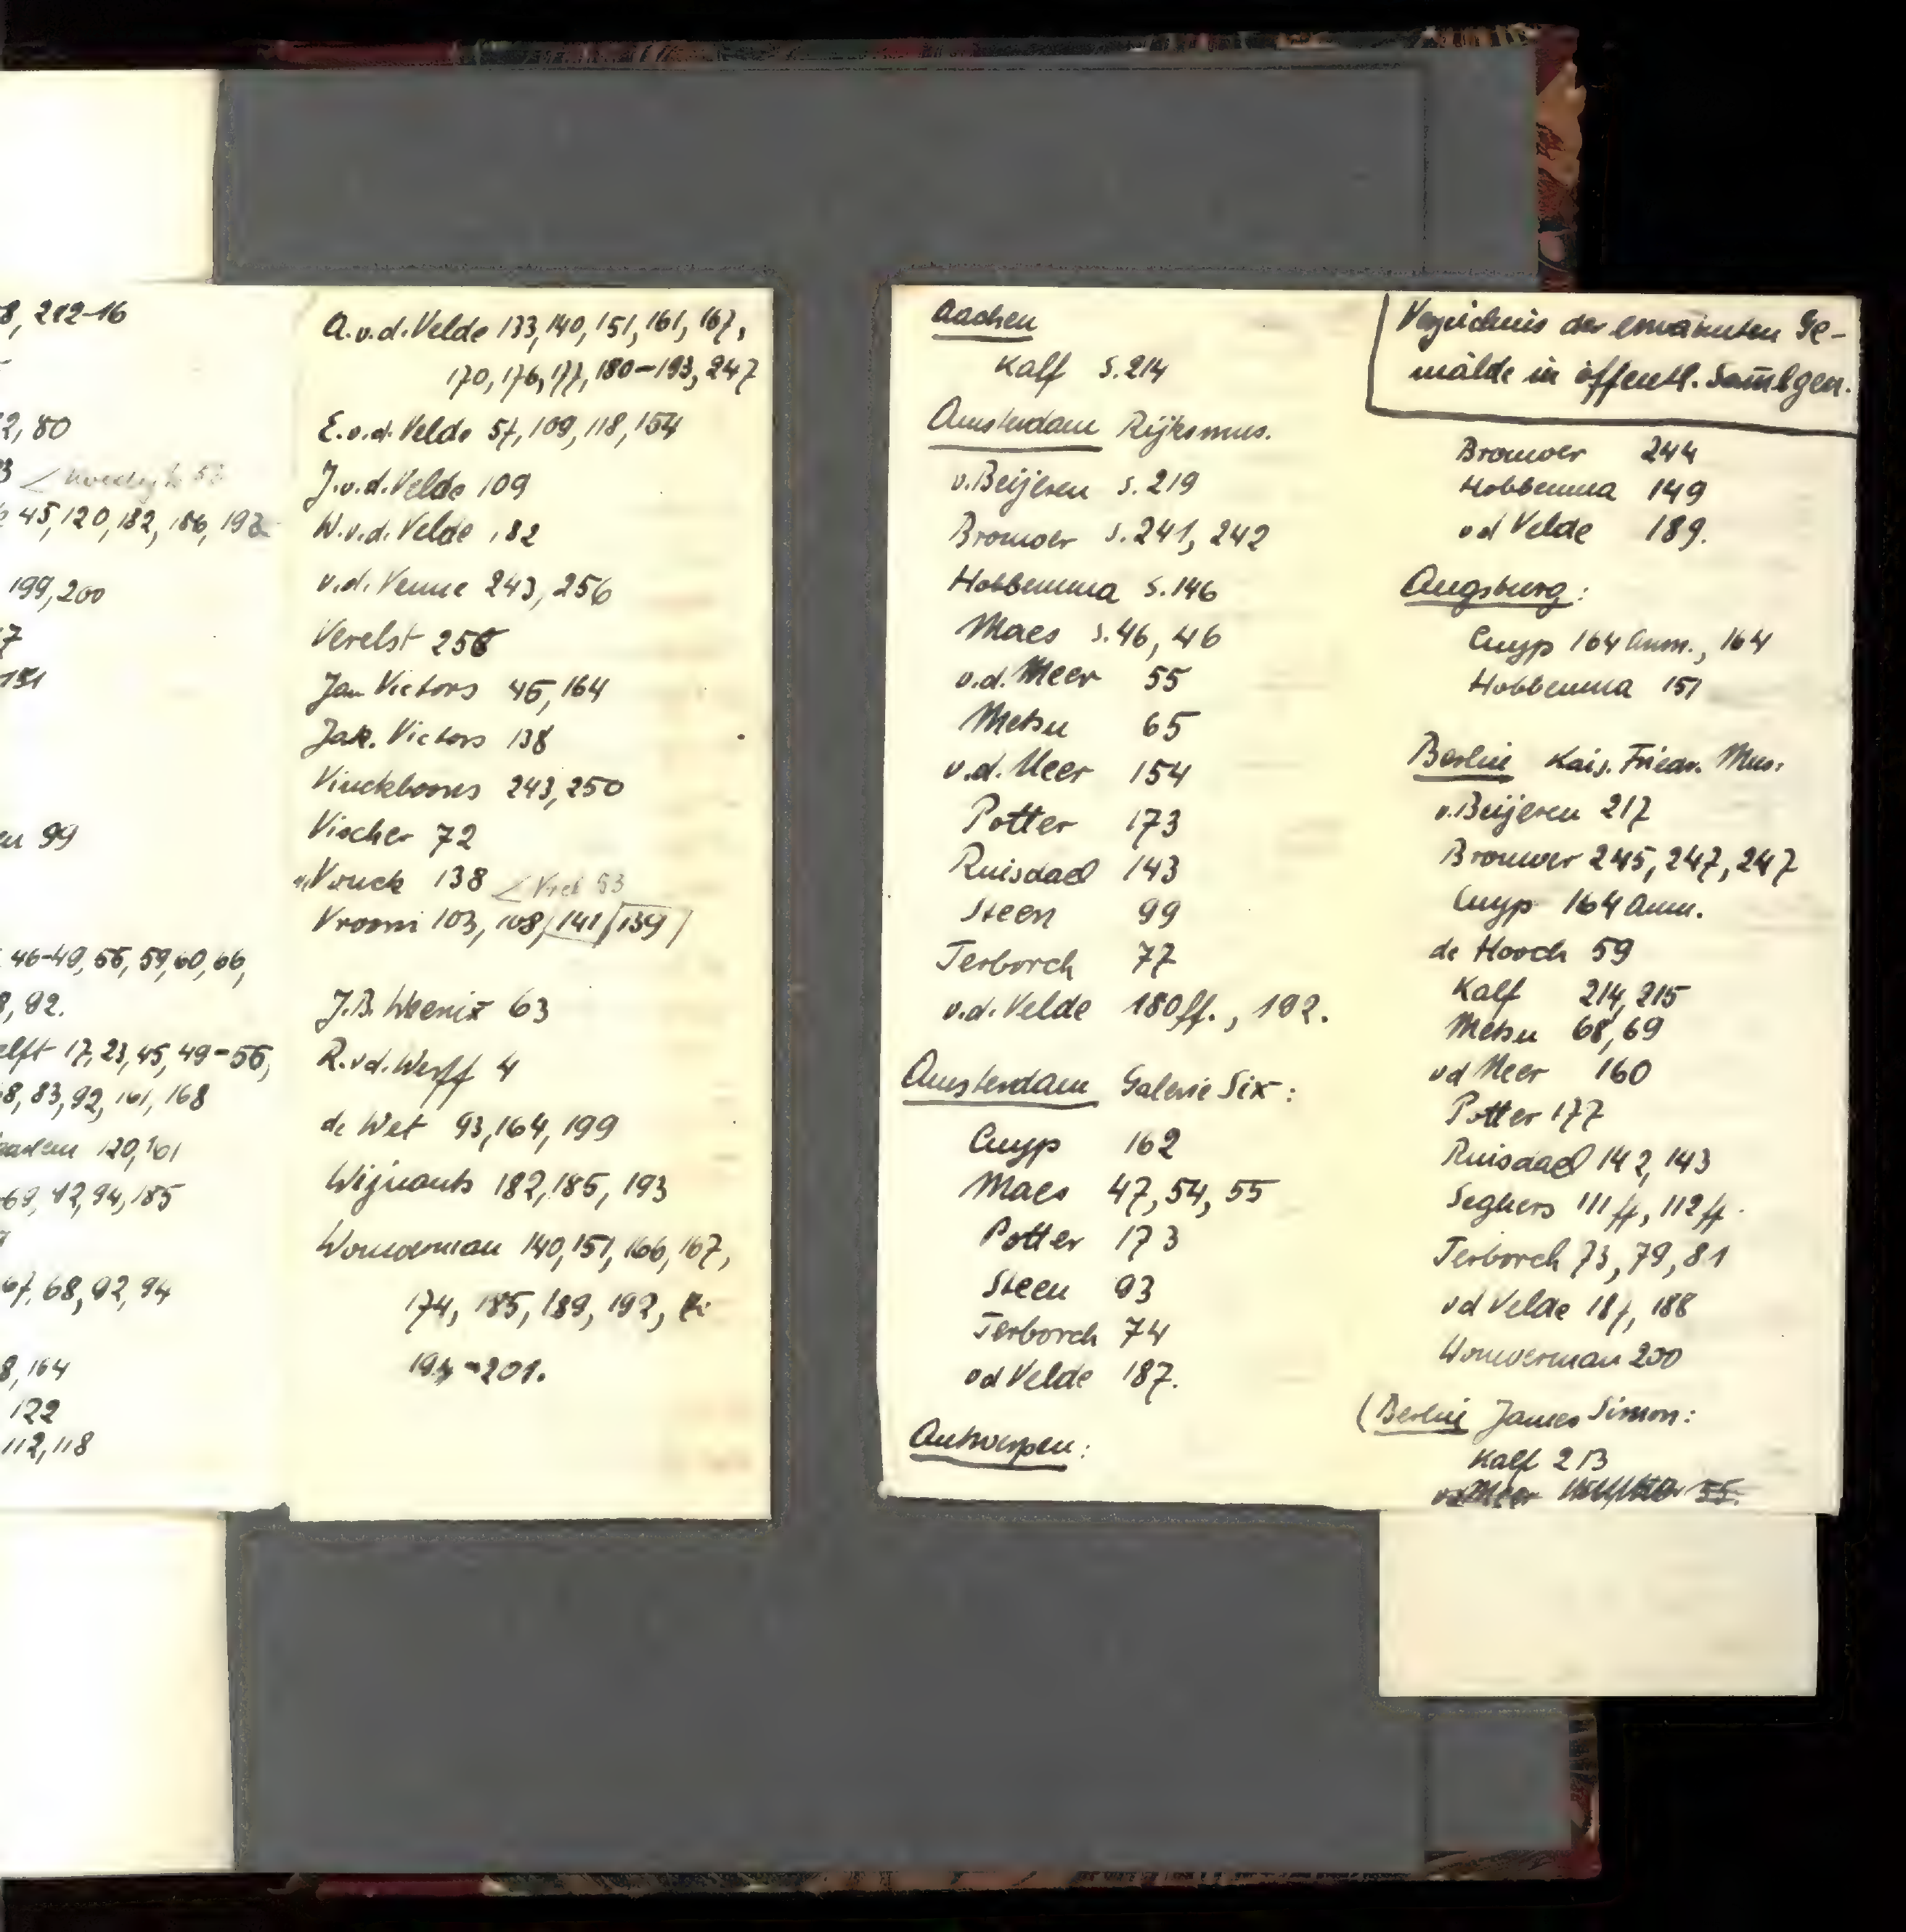 8, 212-16
2, 80
3
45, 120, 182, 186, 192
199, 200
7
151
en 99
46-49, 56, 59, 60, 66,
8, 92.
elft 17, 23, 45, 49-56,
8, 83, 92, 161, 168
120, 161
69, 72, 94, 185
67, 68, 92, 94
8, 164
122
112, 118
A.v.d.Velde 133, 140, 151, 161, 167,
170, 176, 177, 180-193, 247
E.v.d.Velde 57, 109, 118, 154
J.v.d.Velde 109
W.v.d.Velde 182
v.d.Venne 243, 256
Verelst 256
Jan Victors 45, 164
Jak. Victors 138
Vinckboons 243, 250
Vischer 72
Vonck 138 < Vrel 53
Vroom 103, 108, 141 139
J.B. Weenix 63
R.v.d.Werff 4
de Wet 93, 164, 199
Wijnants 182, 185, 193
Wouwerman 140, 151, 166, 167,
174, 185, 189, 192,
194-201.
Aachen
Kalf S. 214
Amsterdam Rijksmus.
v.Beijeren S. 219
Brouwer S. 241, 242
Hobbemma S. 146
Maes S. 46, 46
v.d. Meer 55
Metsu 65
v.d. Meer 154
Potter 173
Ruisdael 143
Steen 99
Terborch 77
v.d. Velde 180ff., 192.
Amsterdam Galerie Six:
Cuyp 162
Maes 47, 54, 55
Potter 173
Steen 93
Terborch 74
vd Velde 187.
Antwerpen:
Verzeichnis der erwähnten Ge-
mälde in öffentl. Sam̄lgen.
Brouwer 244
Hobbemma 149
vd Velde 189.
Augsburg:
Cuyp 164 Anm., 164
Hobbemma 151
Berlin Kais. Friedr. Mus:
v.Beijeren 217
Brouwer 245, 247, 247
Cuyp 164 Anm.
de Hooch 59
Kalf 214, 215
Metsu 68, 69
vd Meer 160
Potter 177
Ruisdael 142, 143
Seghers 111ff, 112ff.
Terborch 73, 79, 81
vd Velde 187, 188
Wouwerman 200
(Berlin James Simon:
Kalf 213
vd Meer 55.